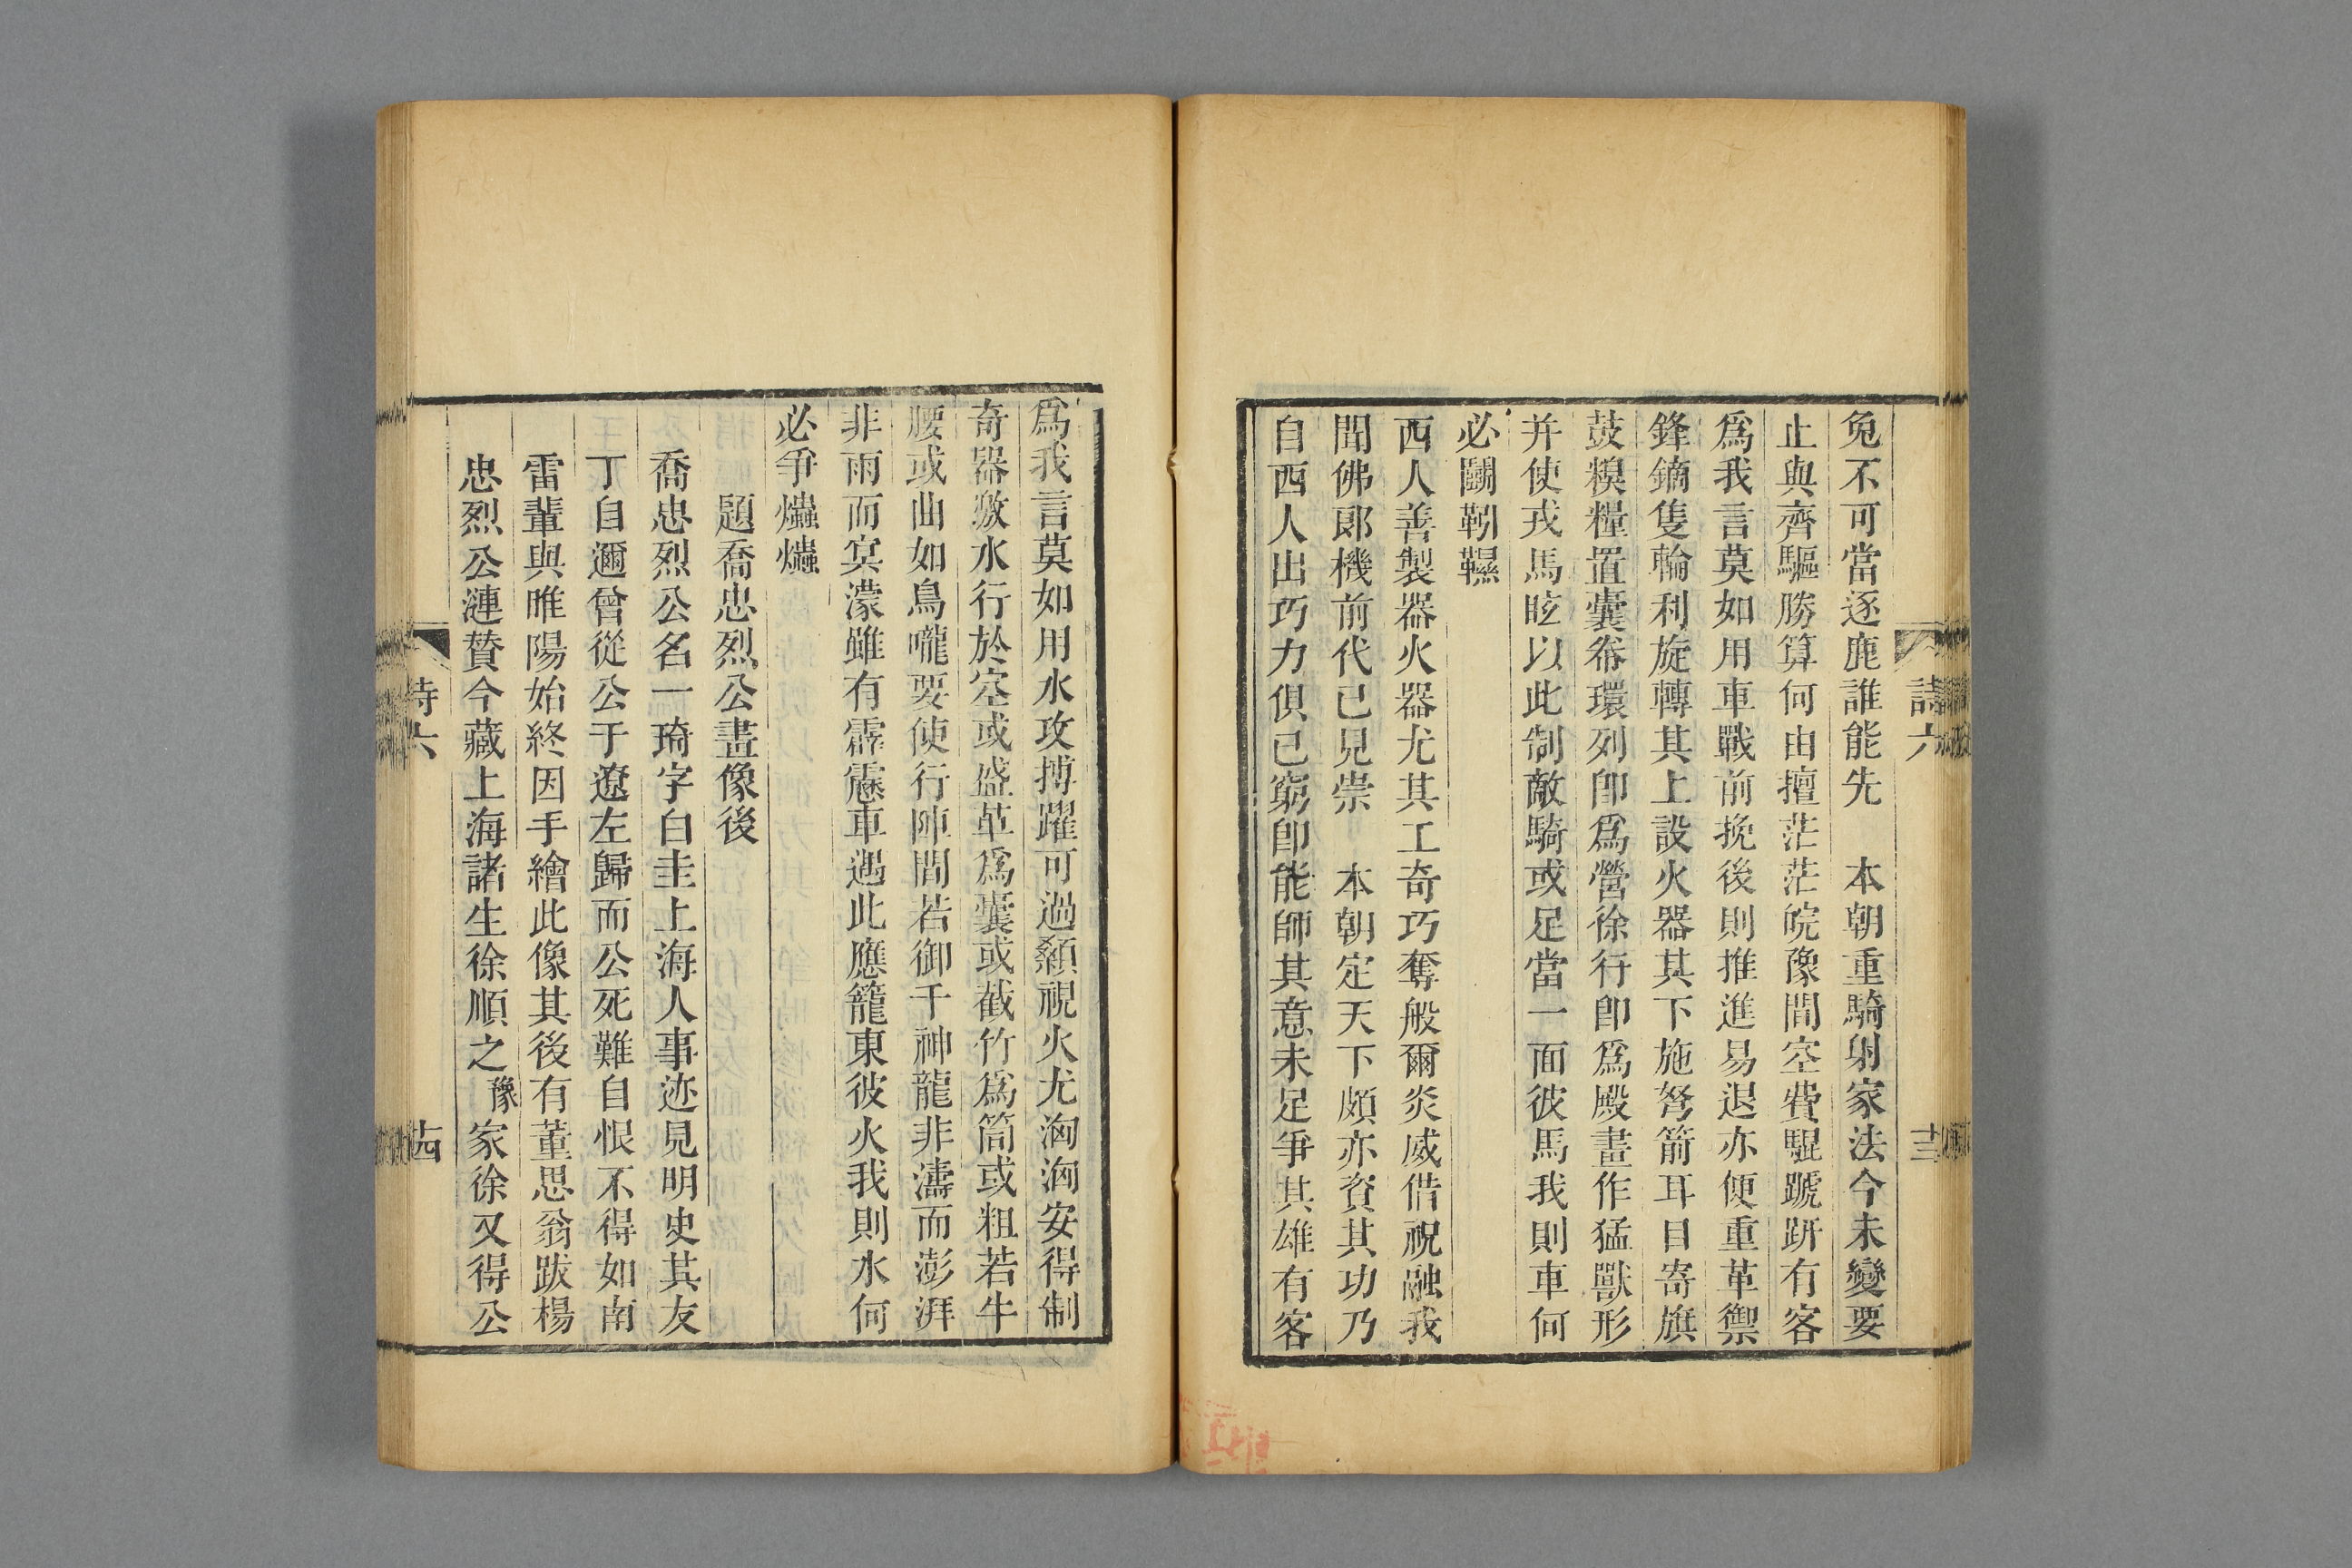 詩六
十三
兔不可當逐鹿誰能先　本朝重騎射家法今未變要
止與齊驅勝算何由擅茫茫皖豫間空費騉蹏趼有客
爲我言莫如用車戰前挽後則推進易退亦便重革禦
鋒鏑隻輪利旋轉其上設火器其下施弩箭耳目寄旗
鼓糗糧置囊帣環列卽爲營徐行卽爲殿畫作猛獸形
并使戎馬眩以此制敵騎或足當一面彼馬我則車何
必鬭靷韅
西人善製器火器尤其工奇巧奪般爾炎威借祝融我
聞佛郎機前代已見崇　本朝定天下頗亦資其功乃
自西人出巧力俱已窮卽能師其意未足爭其雄有客
爲我言莫如用水攻搏躍可過顙視火尤洶洶安得制
奇器激水行於空或盛革爲囊或截竹爲筒或粗若牛
腰或曲如鳥嚨要使行陣間若御千神龍非濤而澎湃
非雨而冥濛雖有霹靂車遇此應籠東彼火我則水何
必爭爞爞
題喬忠烈公畫像後
喬忠烈公名一琦字白圭上海人事迹見明史其友
丁自邇曾從公于遼左歸而公死難自恨不得如南
雷輩與睢陽始終因手繪此像其後有董思翁跋楊
忠烈公漣贊今藏上海諸生徐順之豫家徐又得公
詩六
十四